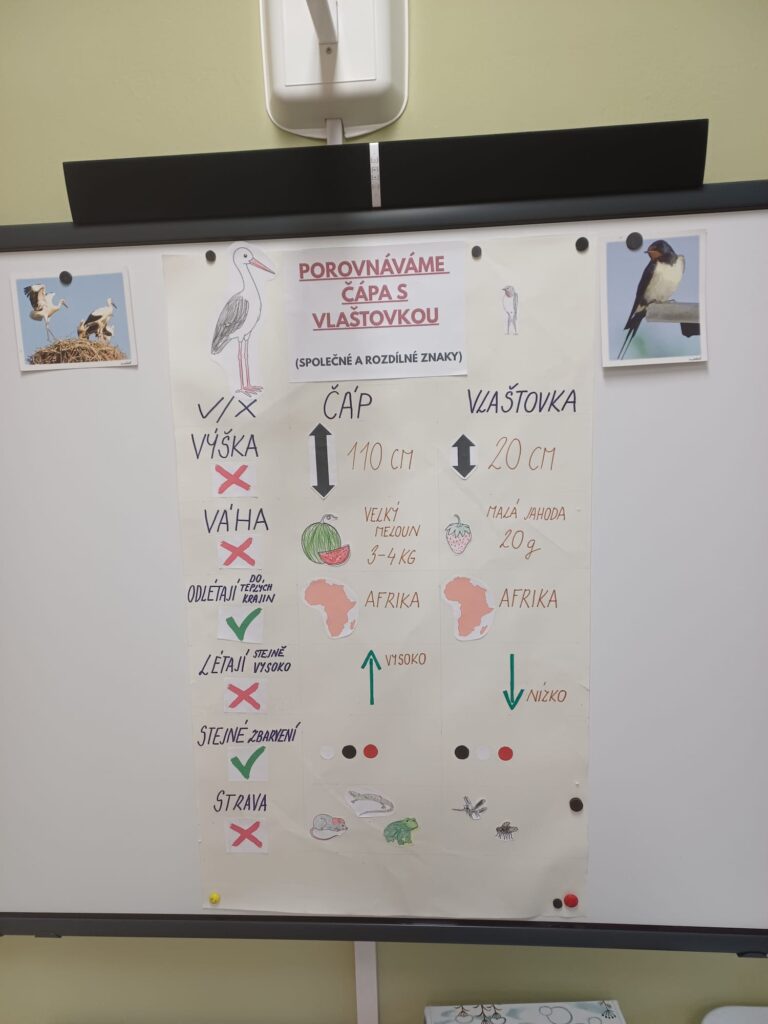 POROVNÁVÁME
ČÁPA S
VLAŠTOVKOU
(SPOLEČNÉ A ROZDÍLNÉ ZNAKY)
✓/X ČÁP VLAŠTOVKA
VÝŠKA 110 CM 20 CM
VÁHA VELKÝ MELOUN 3-4 KG MALÁ JAHODA 20g
ODLÉTAJÍ DO TEPLÝCH KRAJIN AFRIKA AFRIKA
LÉTAJÍ STEJNĚ VYSOKO VYSOKO NÍZKO
STEJNÉ ZBARVENÍ
STRAVA